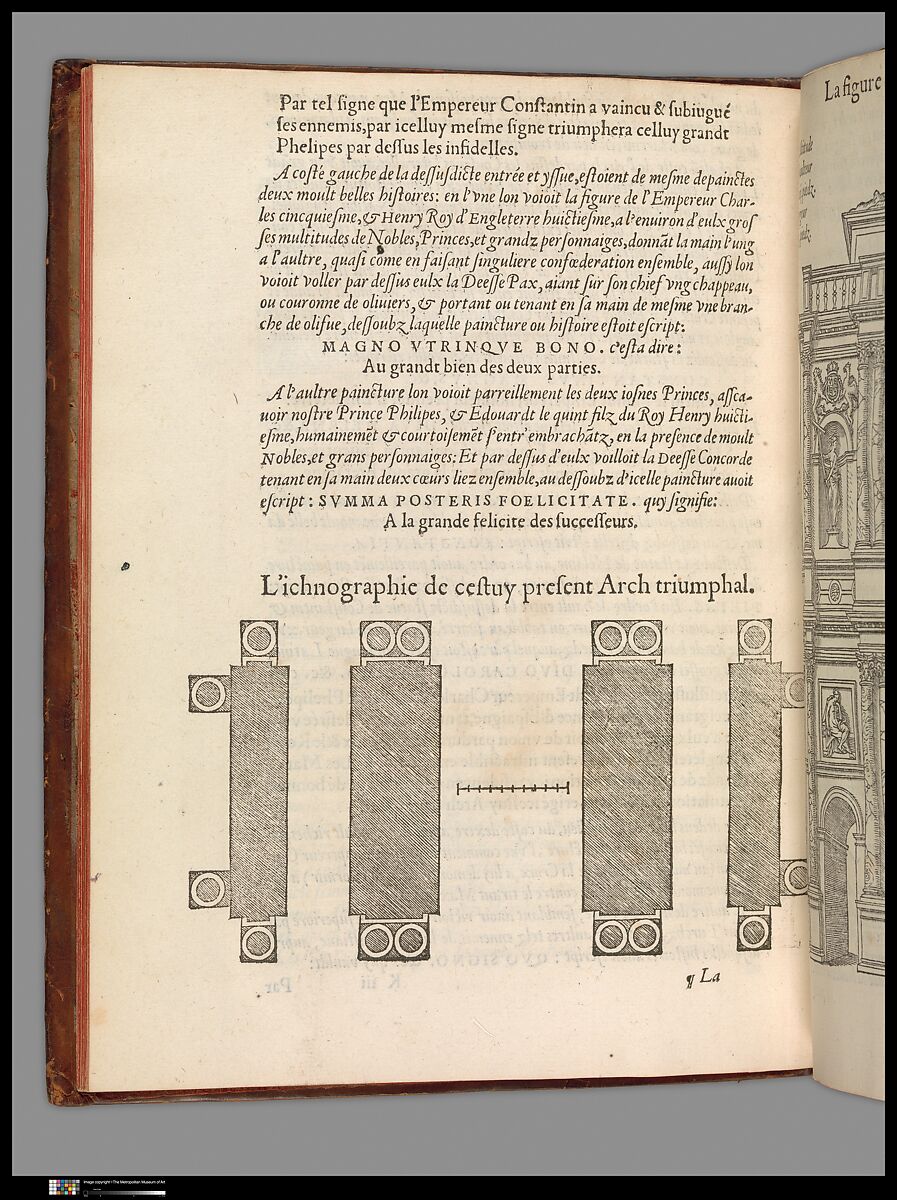 Par tel ſigne que l'Empereur Conſtantin a vaincu & ſubiugué
ſes ennemis,par icelluy meſme ſigne triumphera celluy grandt
Phelipes par deſſus les infidelles.
A coſte gauche de la deſſuſdicte entrée et yſſue,eſtoient de meſme depainctes
deux moult belles hiſtoires: en l'vne lon voioit la figure de l'Empereur Char-
les cincquieſme,& Henry Roy d'Engleterre huictieſme,a l'enuiron d'eulx groſ
ſes multitudes de Nobles,Princes,et grandz perſonnaiges,donnāt la main l'ung
a l'aultre, quaſi cōme en faiſant ſinguliere confœderation enſemble, auſſy lon
voioit voller par deſſus eulx la Deeſſe Pax, aiant ſur ſon chief vng chappeau,
ou couronne de oliuiers, & portant ou tenant en ſa main de meſme vne bran-
che de oliſue, deſſoubz laquelle paincture ou hiſtoire eſtoit eſcript:
MAGNO VTRINQVE BONO. c'eſt a dire:
Au grandt bien des deux parties.
A l'aultre paincture lon voioit parreillement les deux ioſnes Princes, aſſca-
uoir noſtre Prince Philipes, & Edouardt le quint filz du Roy Henry huicti-
eſme,humainemēt & courtoiſemēt ſ'entr'embrachātz, en la preſence de moult
Nobles,et grans perſonnaiges: Et par deſſus d'eulx voilloit la Deeſſe Concorde
tenant en ſa main deux cœurs liez enſemble,au deſſoubz d'icelle paincture auoit
eſcript: SVMMA POSTERIS FOELICITATE. quy ſignifie:
A la grande felicite des ſucceſſeurs.
L'ichnographie de ceſtuy preſent Arch triumphal.
¶ La
La figure
Image copyright The Metropolitan Museum of Art